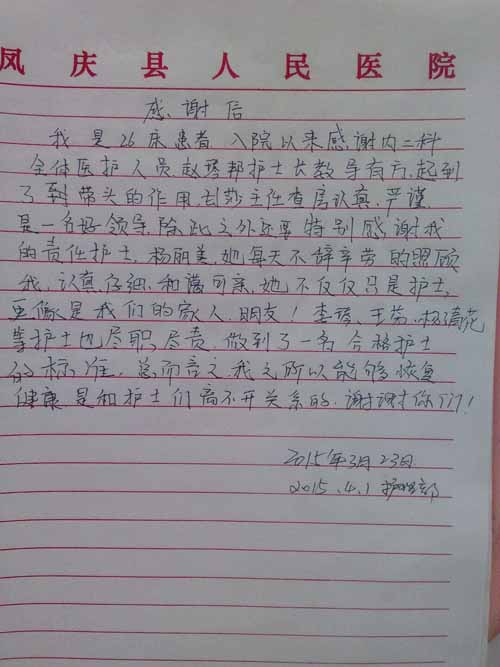 凤庆县人民医院
感谢信
我是26床患者,入院以来感谢内二科
全体医护人员,赵琴邦护士长教导有方,起到
了到带头的作用,主任查房认真,严谨
是一名好领导,除此之外还要特别感谢我
的责任护士,杨丽美,她每天不辞辛劳的照顾
我,认真,仔细,和蔼可亲,她不仅仅只是护士,
更像是我们的家人,朋友!李琴、王芳、杨清花
等护士也尽职尽责,做到了一名合格护士
的标准,总而言之我之所以能够恢复
健康是和护士们离不开关系的,谢谢你们!
2015年3月23日.
2015.4.1 护理部